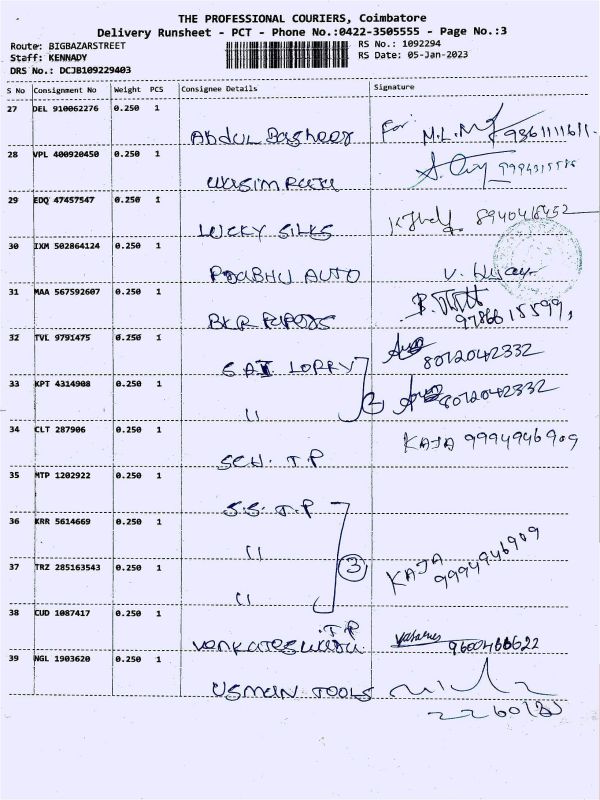 THE PROFESSIONAL COURIERS, Coimbatore
Delivery Runsheet - PCT - Phone No.:0422-3505555 - Page No.:3
Route: BIGBAZARSTREET
RS No.: 1092294
Staff: KENNADY
RS Date: 05-Jan-2023
DRS No.: DCJB109229403
S No Consignment No Weight PCS Consignee Details Signature
27 DEL 910062276 0.250 1
ABDUL Basheer For M.L.M
28 VPL 400920450 0.250 1
WASIM RAJA
29 EDQ 47457547 0.250 1
LUCKY SILKS 8940418452
30 IXM 502864124 0.250 1
PRABHU AUTO
31 MAA 567592607 0.250 1
BKR 9786615599,
32 TVL 9791475 0.250 1
SAI LORRY 8012042332
33 KPT 4314908 0.250 1
" 2 8012042332
34 CLT 287906 0.250 1
KAJA 9994946909
SCH. T.P
35 MTP 1202922 0.250 1
S.S. T.P
36 KRR 5614669 0.250 1
"
37 TRZ 285163543 0.250 1
3 KAJA
" 9994946909
38 CUD 1087417 0.250 1
T.P
9600466622
39 NGL 1903620 0.250 1
USMAN TOOLS